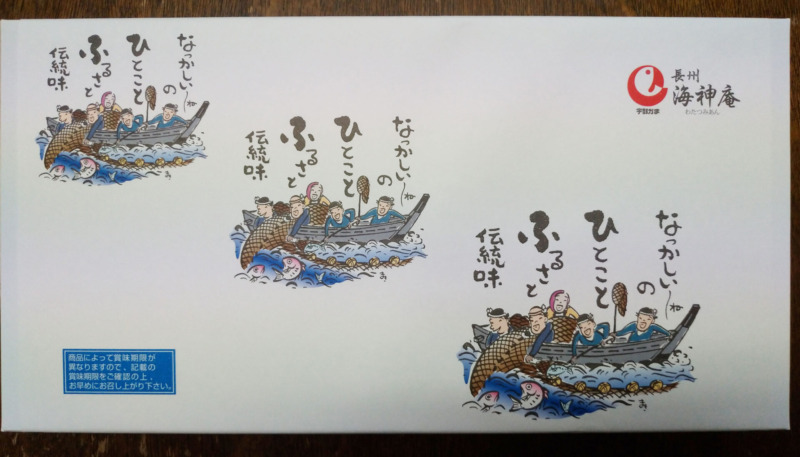 なつかしい〜ね
の
ひとこと
ふるさと
伝統味
なつかしい〜ね
の
ひとこと
ふるさと
伝統味
なつかしい〜ね
の
ひとこと
ふるさと
伝統味
宇部かま
長州
海神庵
わたつみあん
商品によって賞味期限が
異なりますので、記載の
賞味期限をご確認の上、
お早めにお召し上がり下さい。